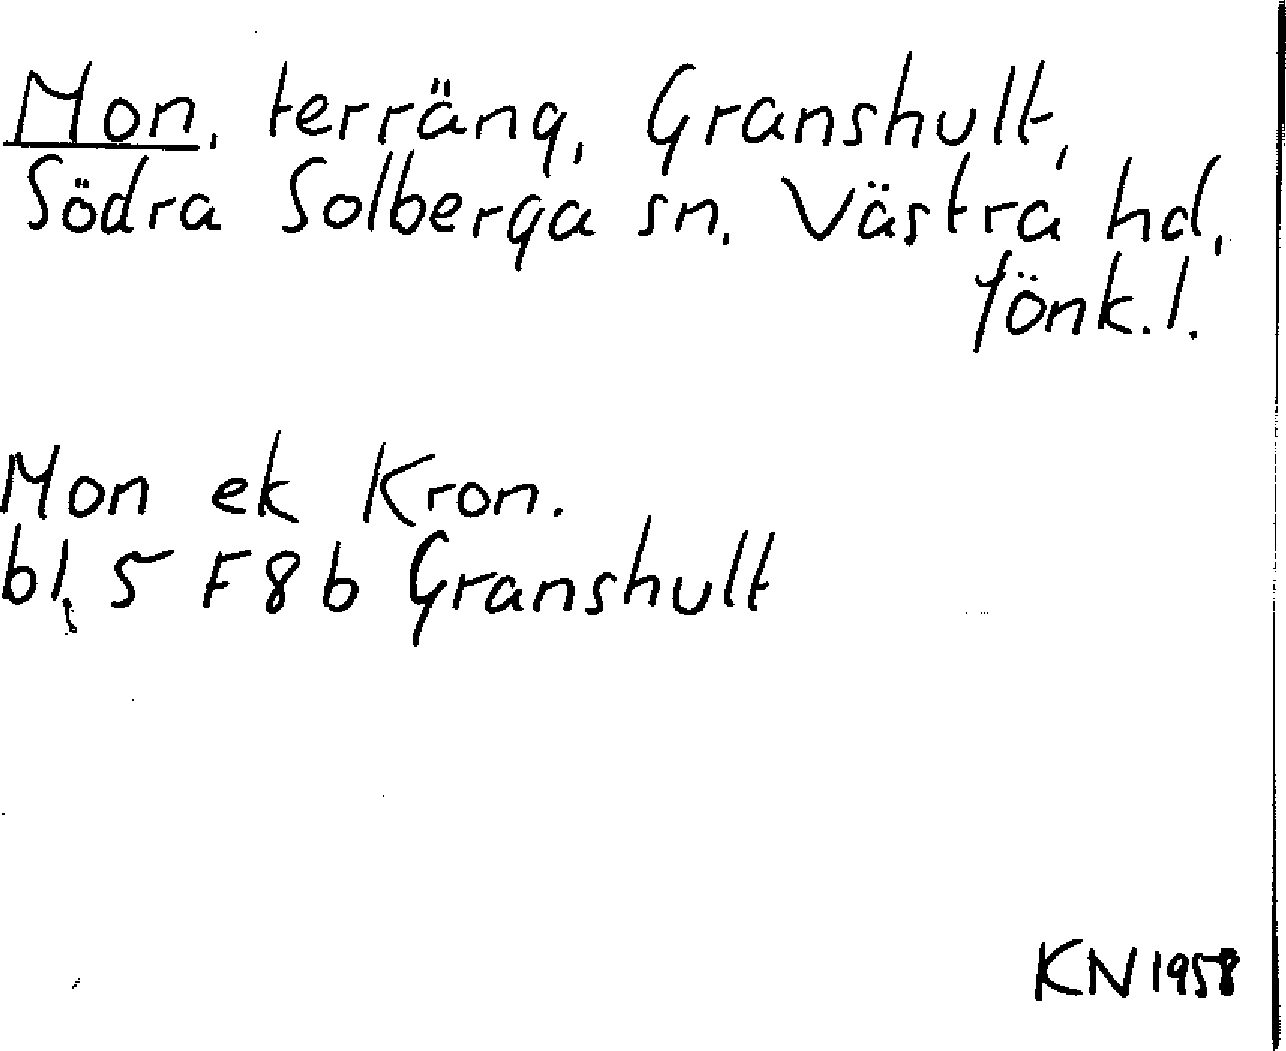 Mon, terräng, Granshult,
Södra Solberga sn, Västra hd,
Jönk. l.
Mon ek Kron.
bl. 5 F 8 b Granshult
KN 1958